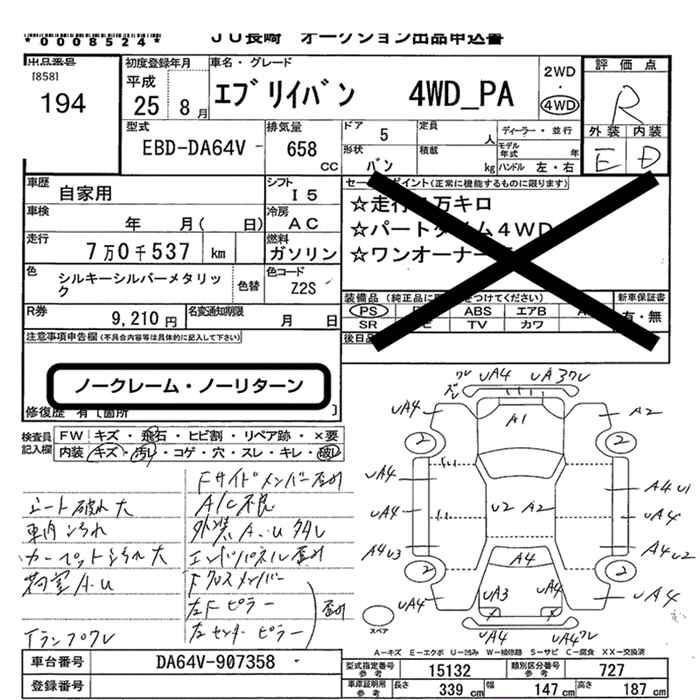 *0008524*
JU長崎 オークション出品申込書
出品番号
[858]
194
初度登録年月
平成
25 8月
車名・グレード
エブリイバン 4WD_PA
2WD
・
4WD
評価点
R
外装 内装
E D
型式
EBD-DA64V
排気量
658
CC
ドア 5
形状
バン
定員 人
積載 kg
ディーラー・並行
モデル年式 年
ハンドル 左・右
車歴
自家用
シフト
I5
車検
年 月( 日)
冷房
AC
走行
7万0千537 km
燃料
ガソリン
色
シルキーシルバーメタリック
色替
色コード
Z2S
R券
9,210円
名変通知期限
月 日
セールスポイント(正常に機能するものに限ります)
☆走行 万キロ
☆パートタイム4WD
☆ワンオーナー
装備品(純正品に をつけてください)
新車保証書
PS ABS エアB
有・無
SR TV カワ
後日品
注意事項申告欄(不具合内容等は具体的に記入して下さい)
ノークレーム・ノーリターン
修復歴 有[箇所 ]
検査員記入欄
FW キズ・飛石・ヒビ割・リペア跡・×要
内装 キズ・汚レ・コゲ・穴・スレ・キレ・破レ
Fサイドメンバー歪み
シート破れ大
A/C不良
車内汚れ
外装A.U多し
カーペット汚れ大
エンドパネル歪み
荷室A.U
Fクロスメンバー
左Fピラー
左センターピラー
歪み
Tランプワレ
ワレ UA4 UA3ワレ
ズレ
UA4 A1 A2
2 2
UA4 A4U1
UA4 U2 A2 UA4
A4U3 A4U2
A4
2 2
UA4 UA3 UA4 UA4
X X
UA4 UA4ワレ
スペア
A－キズ E－エクボ U－凹み W－補修跡 S－サビ C－腐食 XX－交換済
車台番号
DA64V-907358
登録番号
型式指定番号
参考
15132
類別区分番号
参考
727
車庫証明用
参考
長さ 339 cm
幅 147 cm
高さ 187 cm